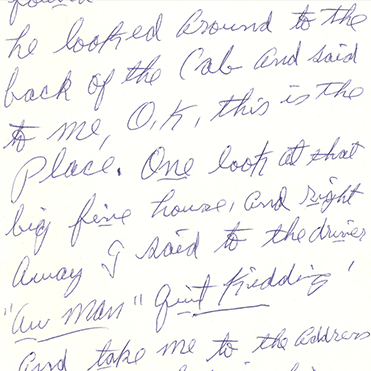 he looked around to the
back of the Cab and said
to me, O.K, this is the
Place. One look at that
big fine house, and right
away I said to the driver
"aw man" quit Kidding'
And take me to the address